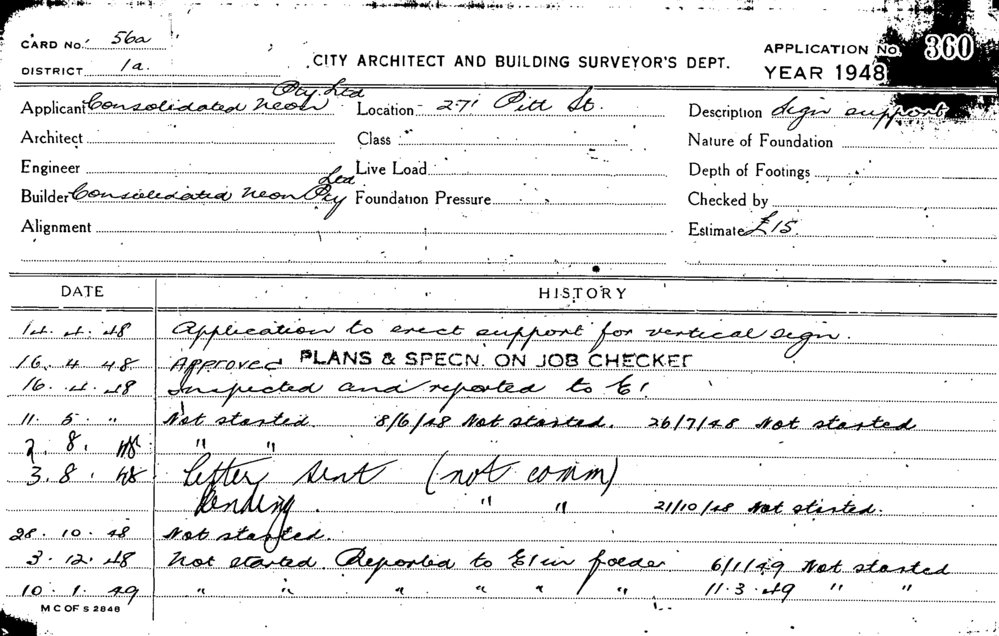 CARD No. 56a
DISTRICT 1a.
CITY ARCHITECT AND BUILDING SURVEYOR'S DEPT.
APPLICATION No. 360
YEAR 1948
Applicant Consolidated Neon Pty. Ltd
Location 271 Pitt St.
Description Sign support
Architect
Class
Nature of Foundation
Engineer
Live Load
Depth of Footings
Builder Consolidated Neon Pty Ltd
Foundation Pressure
Checked by
Alignment
Estimate £15.
DATE HISTORY
14. 4. 48 Application to erect support for vertical sign.
16. 4. 48 Approved PLANS & SPECN. ON JOB CHECKED
16. 4. 48 Inspected and reported to E!
11. 5. " Not started. 8/6/48 Not started. 26/7/48 Not started
2. 8. 48 " "
3. 8. 48 Letter sent (not comm)
Pending. " " 21/10/48 Not started.
28. 10. 48 Not started.
3. 12. 48 Not started. Reported to E! in folder 6/1/49 Not started
10. 1. 49 " " " " " " 11. 3. 49 " "
M C OF S 2848